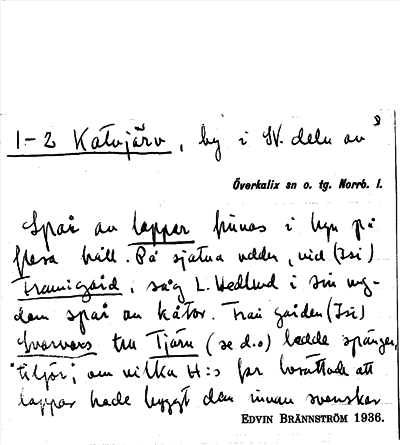 1-2 Katvjärv, by i SV. deln av
Överkalix sn o. tg. Norrb. l.
Spår av lappar finnas i byn på
flera håll. På sjatva udden, vid (Isi)
, såg L. Hedlund i sin ung-
dom spår av kåtor. Från gården (Isi)
till Tjärn (se d.o) ledde spänger,
"tiljor", om vilka H:s far berättade att
lappar hade byggt dem innan svenskar
EDVIN BRÄNNSTRÖM 1936.